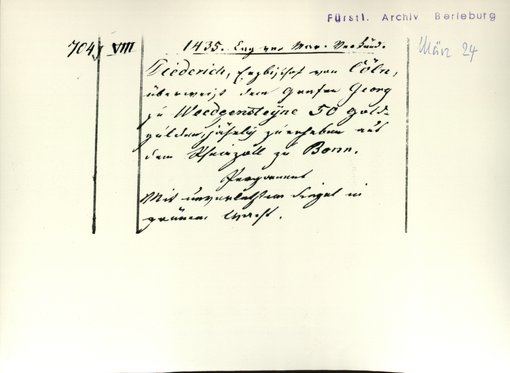 Fürstl. Archiv Berleburg
704 VIII 1435. Tag vor Mar. Verkünd. März 24
Diederich, Erzbischof von Cöln,
überweist dem Grafen Georg
zu Woedgenstëyne 50 Gold-
gulden, jährlich zu erheben aus
dem Rheinzoll zu Bonn.
Pergament
Mit unverletztem Siegel in
grünem Wachs.